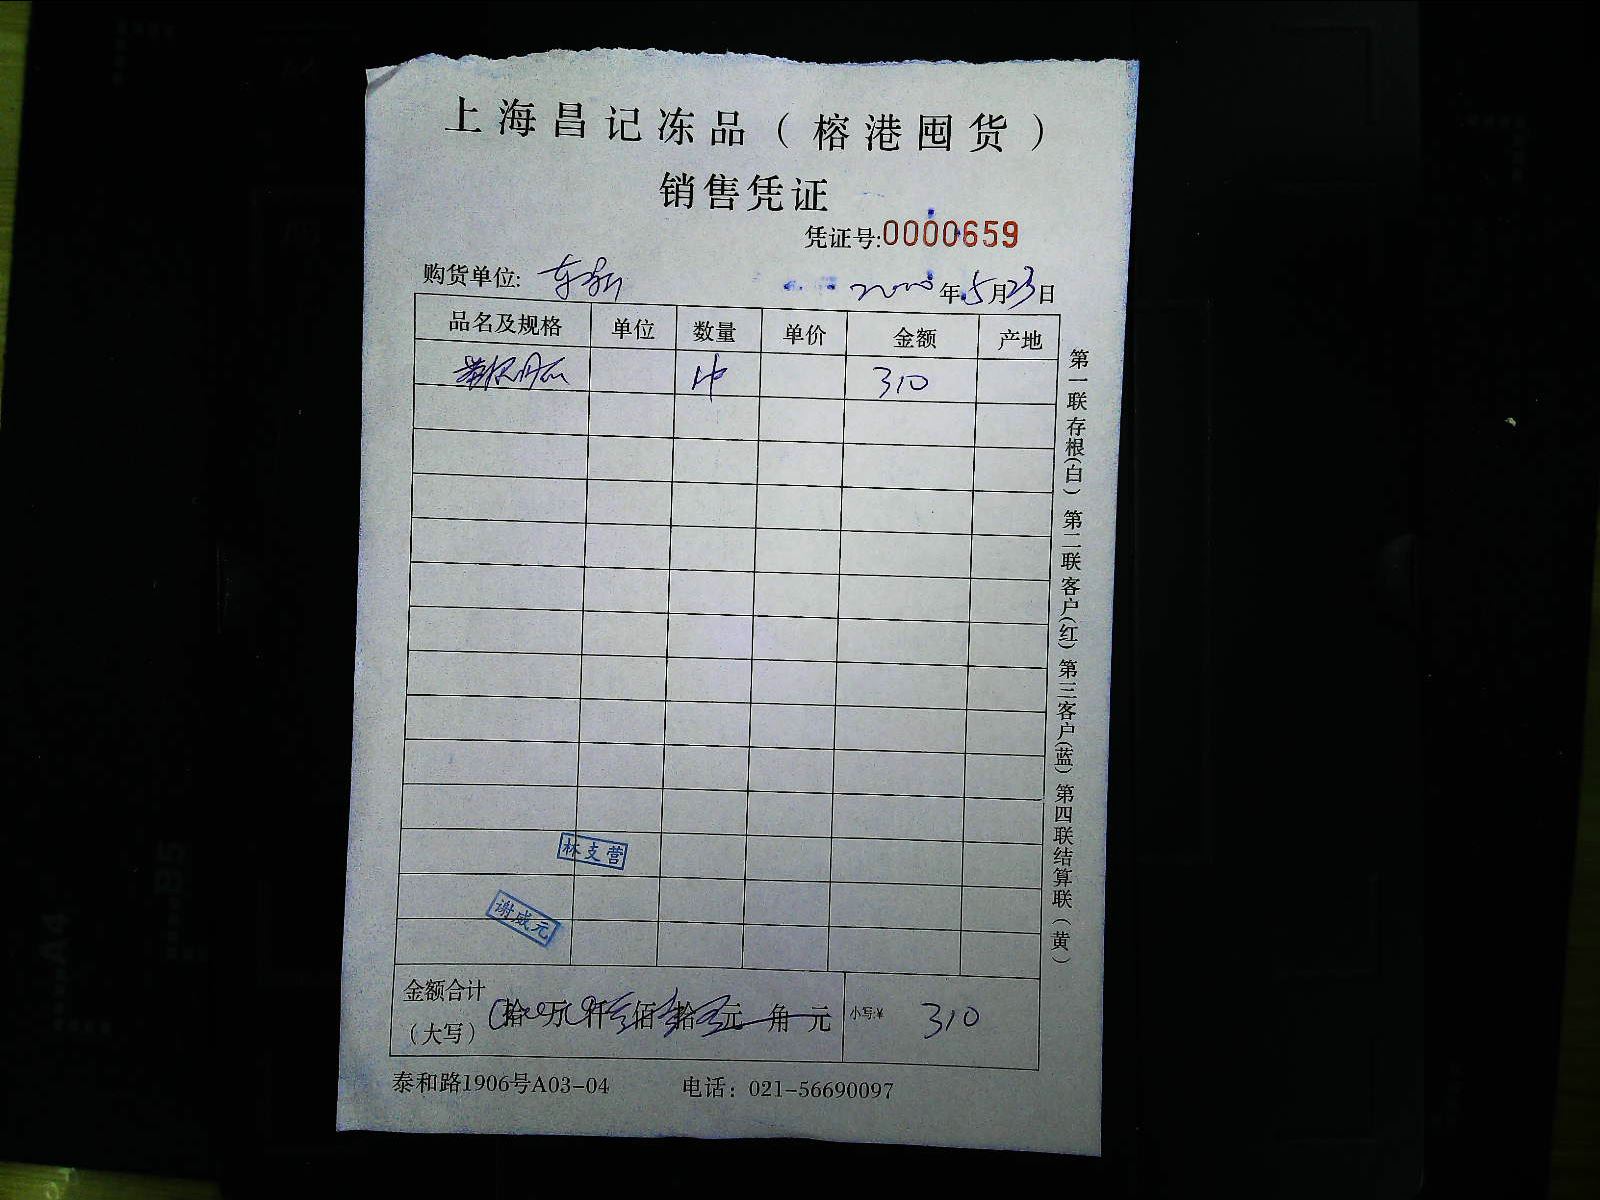 上海昌记冻品（榕港囤货）
销售凭证
凭证号:0000659
购货单位:
年5月23日
品名及规格 单位 数量 单价 金额 产地
1件 310
第一联存根(白) 第二联客户(红) 第三客户(蓝) 第四联结算联(黄)
林支营
谢成元
金额合计
（大写） 拾 万 仟 佰 拾 元 角 元 小写:¥ 310
泰和路1906号A03-04 电话：021-56690097